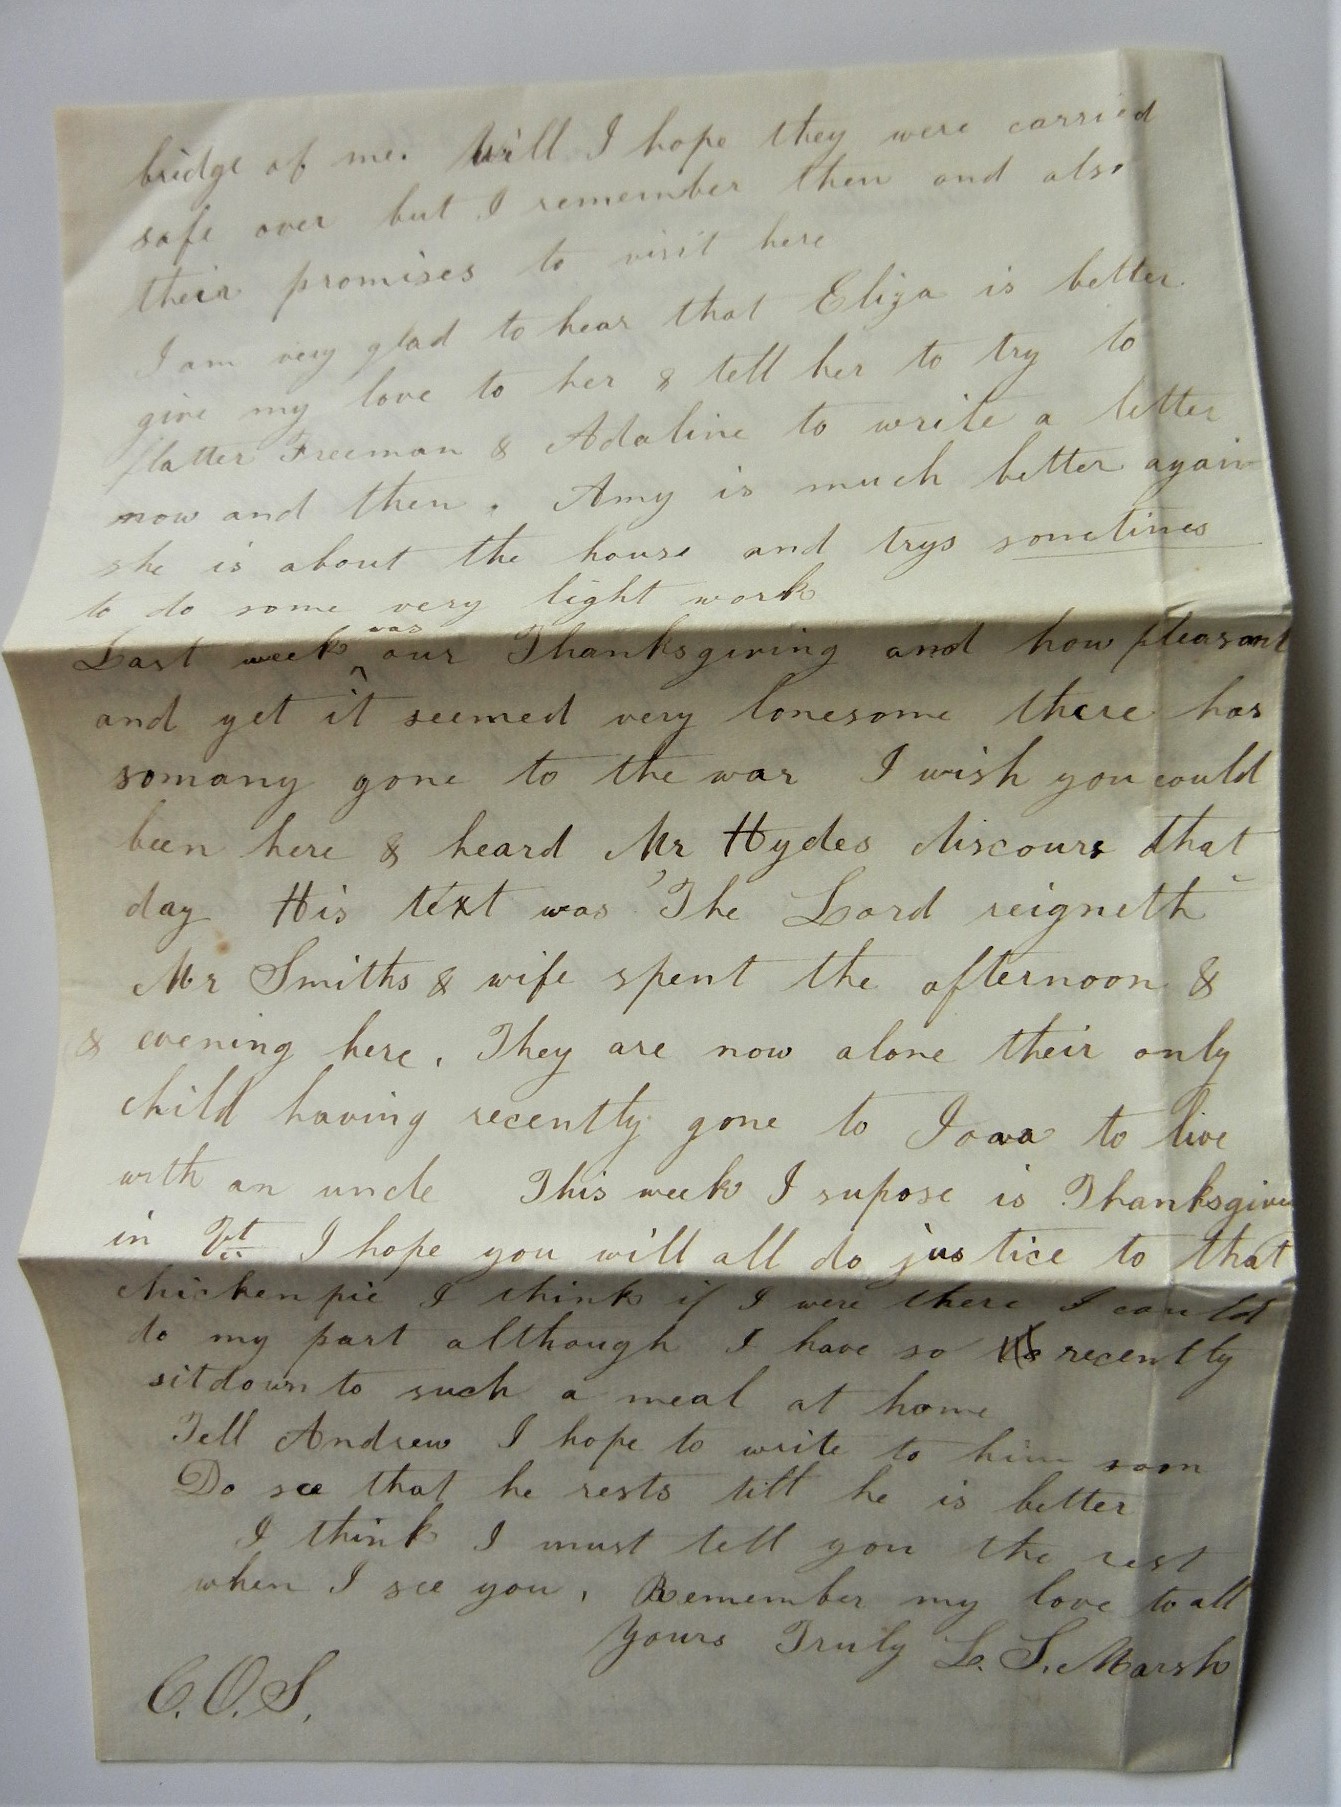 bridge of me. Will I hope they were carried
safe over but I remember them and also
their promises to visit here
I am very glad to hear that Eliza is better.
give my love to her & tell her to try to
flatter Freeman & Adaline to write a letter
now and then. Amy is much better again
she is about the house and trys sometimes
to do some very light work
Last week was our Thanksgiving and how pleasant
and yet it seemed very lonesome there has
somany gone to the war I wish you could
been here & heard Mr Hydes discours that
day His text was "The Lord reigneth"
Mr Smiths & wife spent the afternoon &
& evening here. They are now alone their only
child having recently gone to Iowa to live
with an uncle This week I supose is Thanksgiving
in Vt I hope you will all do justice to that
chicken pie I think if I were there I could
do my part although I have so recently
sitdown to such a meal at home
Tell Andrew I hope to write to him soon
Do see that he rests till he is better
I think I must tell you the rest
when I see you. Remember my love to all
Yours Truly L. S. Marsh
C.O.S.